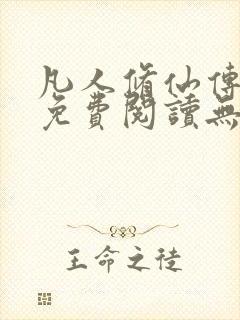 凡人脩仙傳
免費閱讀無
王命之徒